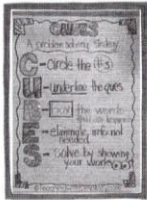 CUBES
A problem solving Strategy
C - Circle the (#s)
U - Underline the ques.
B - Box the words
E - Eliminate info not
needed
S - Solve by showing
your work